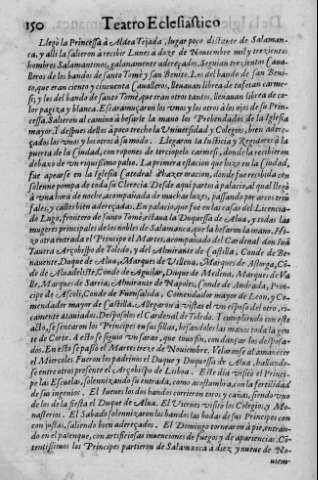 150 Teatro Eclesiastico
Llegò la Princessa à Aldea Tejada, lugar poco distante de Salaman-
ca, y alli la salieron à recebir Lunes à doze de Noviembre mil y trezientos
hombres Salamantinos, galanamente adereçados. Seguian trezientos Cava-
lleros de los bandos de santo Tomè, y san Benito. Los del bando de san Beni-
to, que eran ciento y cincuenta Cavalleros, llevavan librea de tafetan carme-
si; y los del bando de santo Tomè, que eran otros tantos, llevavan librea de co-
lor pagiza y blanca. Escaramuçaron los unos y los otro à los ojos de su Prin-
cessa. Salieron al camino à besarle la mano los Prebendados de la Iglesia
mayor. I despues dellos à poco trecho la Universidad y Colegios, bien adere-
çados los unos y los otros à su modo. Llegaron la Iusticia y Regidores à la
puerta de la Ciudad, con ropones de terciopelo carmesi, donde la recibieron
debaxo de un riquissimo palio. La primera estacion que hizo en la Ciudad,
fue apearse en la Iglesia Catedral à hazer oracion, donde fue recibida con
solenne pompa de toda su Clerecia. Desde aqui partiò à palacio, al qual llegò
à una hora de noche, acompañada de muchas luzes, passando por arcos triun-
fales, y calles bien adereçadas. En palacio, que fue en las casas del Licencia-
do Lugo, frontero de santo Tomè, estava la Duquessa de Alva, y todas las
mugeres principales de los nobles de Salamanca, que la besaron la mano. Hi-
zo otra entrada el Principe el Martes, acompañado del Cardenal don Iuã
Tavera Arçobispo de Toledo, y del Almirante de Castilla, Conde de Be-
navente, Duque de Alva, Marques de Villena, Marques de Astorga, Cõ-
de de Alvadeliste, Conde de Aguilar, Duque de Medina, Marques de Va-
lle, Marques de Sarria, Almirante de Napoles, Conde de Andrada, Prin-
cipe de Ascoli, Conde de Fuensalida, Comendador mayor de Leon, y Co-
mendador mayor de Castilla. Alegrava à vistas el un esposo del otro, ri-
camente ataviados. Desposòlos el Cardenal de Toledo. Y cumpliendo con este
acto, se sentaron los Principes en sus sillas, besandoles las manos toda la gen-
te de Corte. A esto se siguiò un sarao, que tuvo fin, con dançar los desposa-
dos. En esto se passò el Martes treze de Noviembre. Velaronse al amanecer
el Miercoles. Fueron los padrinos el Duque y Duquessa de Alva, hallando-
se entre otros presente el Arçobispo de Lisboa. Este dia visitò el Princi-
pe las Escuelas, solennizando su entrada, como acostumbra, con la fertilidad
de sus ingenios. El Iueves los dos bandos corrieron toros y cañas, siendo uno
de los de la fiesta el Duque de Alva. El Viernes visitò los Colegios, y Mo-
nasterios. El Sabado solennizaron los bandos las bodas de sus Principes con
con justas, saliendo bien adereçados. El Domingo tornearon à pie, entran-
do en el palenque, con artificiosas invenciones de fuegos y de apariencias. Cõ-
tentissimos los Principes partieron de Salamanca à diez y nueve de No-
viem-